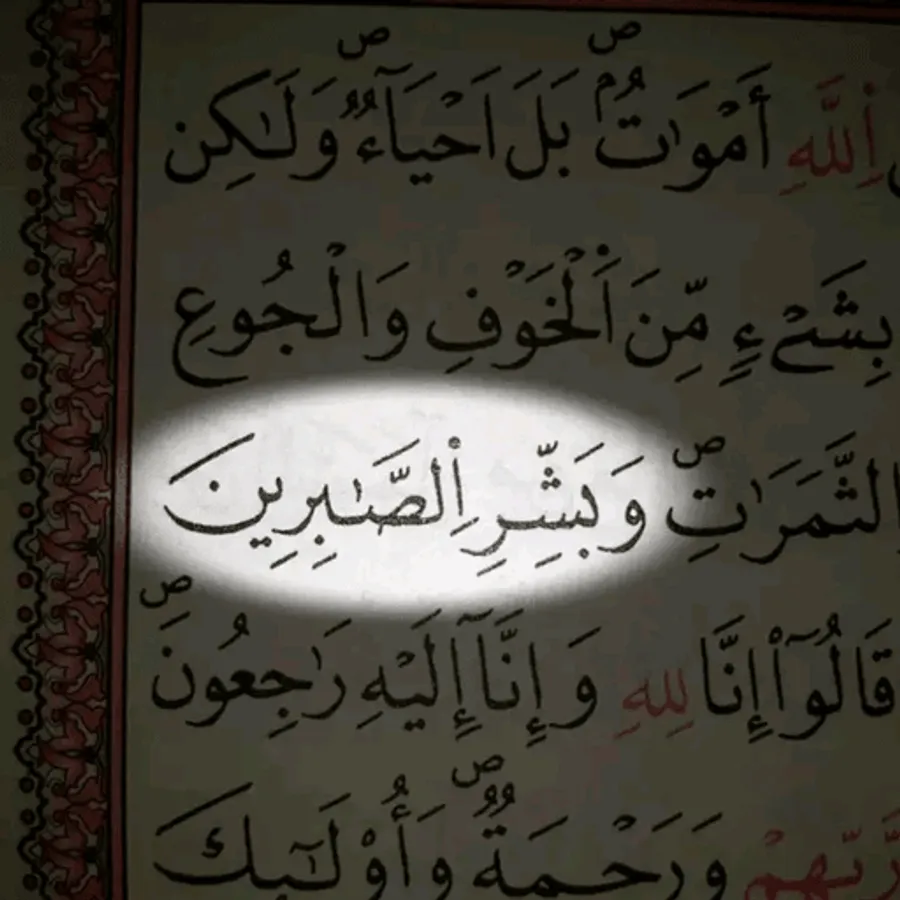 اِ۬للَّهِ أَمْوَٰتُۢ بَلَ اَحْيَآءٞ وَلَٰكِن
بِشَےْءٖ مِّنَ اَ۬لْخَوْفِ وَالْجُوعِ
الثَّمَرَٰتِ وَبَشِّرِ اِ۬لصَّٰبِرِينَ
قَالُوٓاْ إِنَّا لِلهِ وَإِنَّآ إِلَيْهِ رَٰجِعُونَ
رَّبِّهِمْ وَرَحْمَةٞ وَأُوْلَٰٓئِكَ